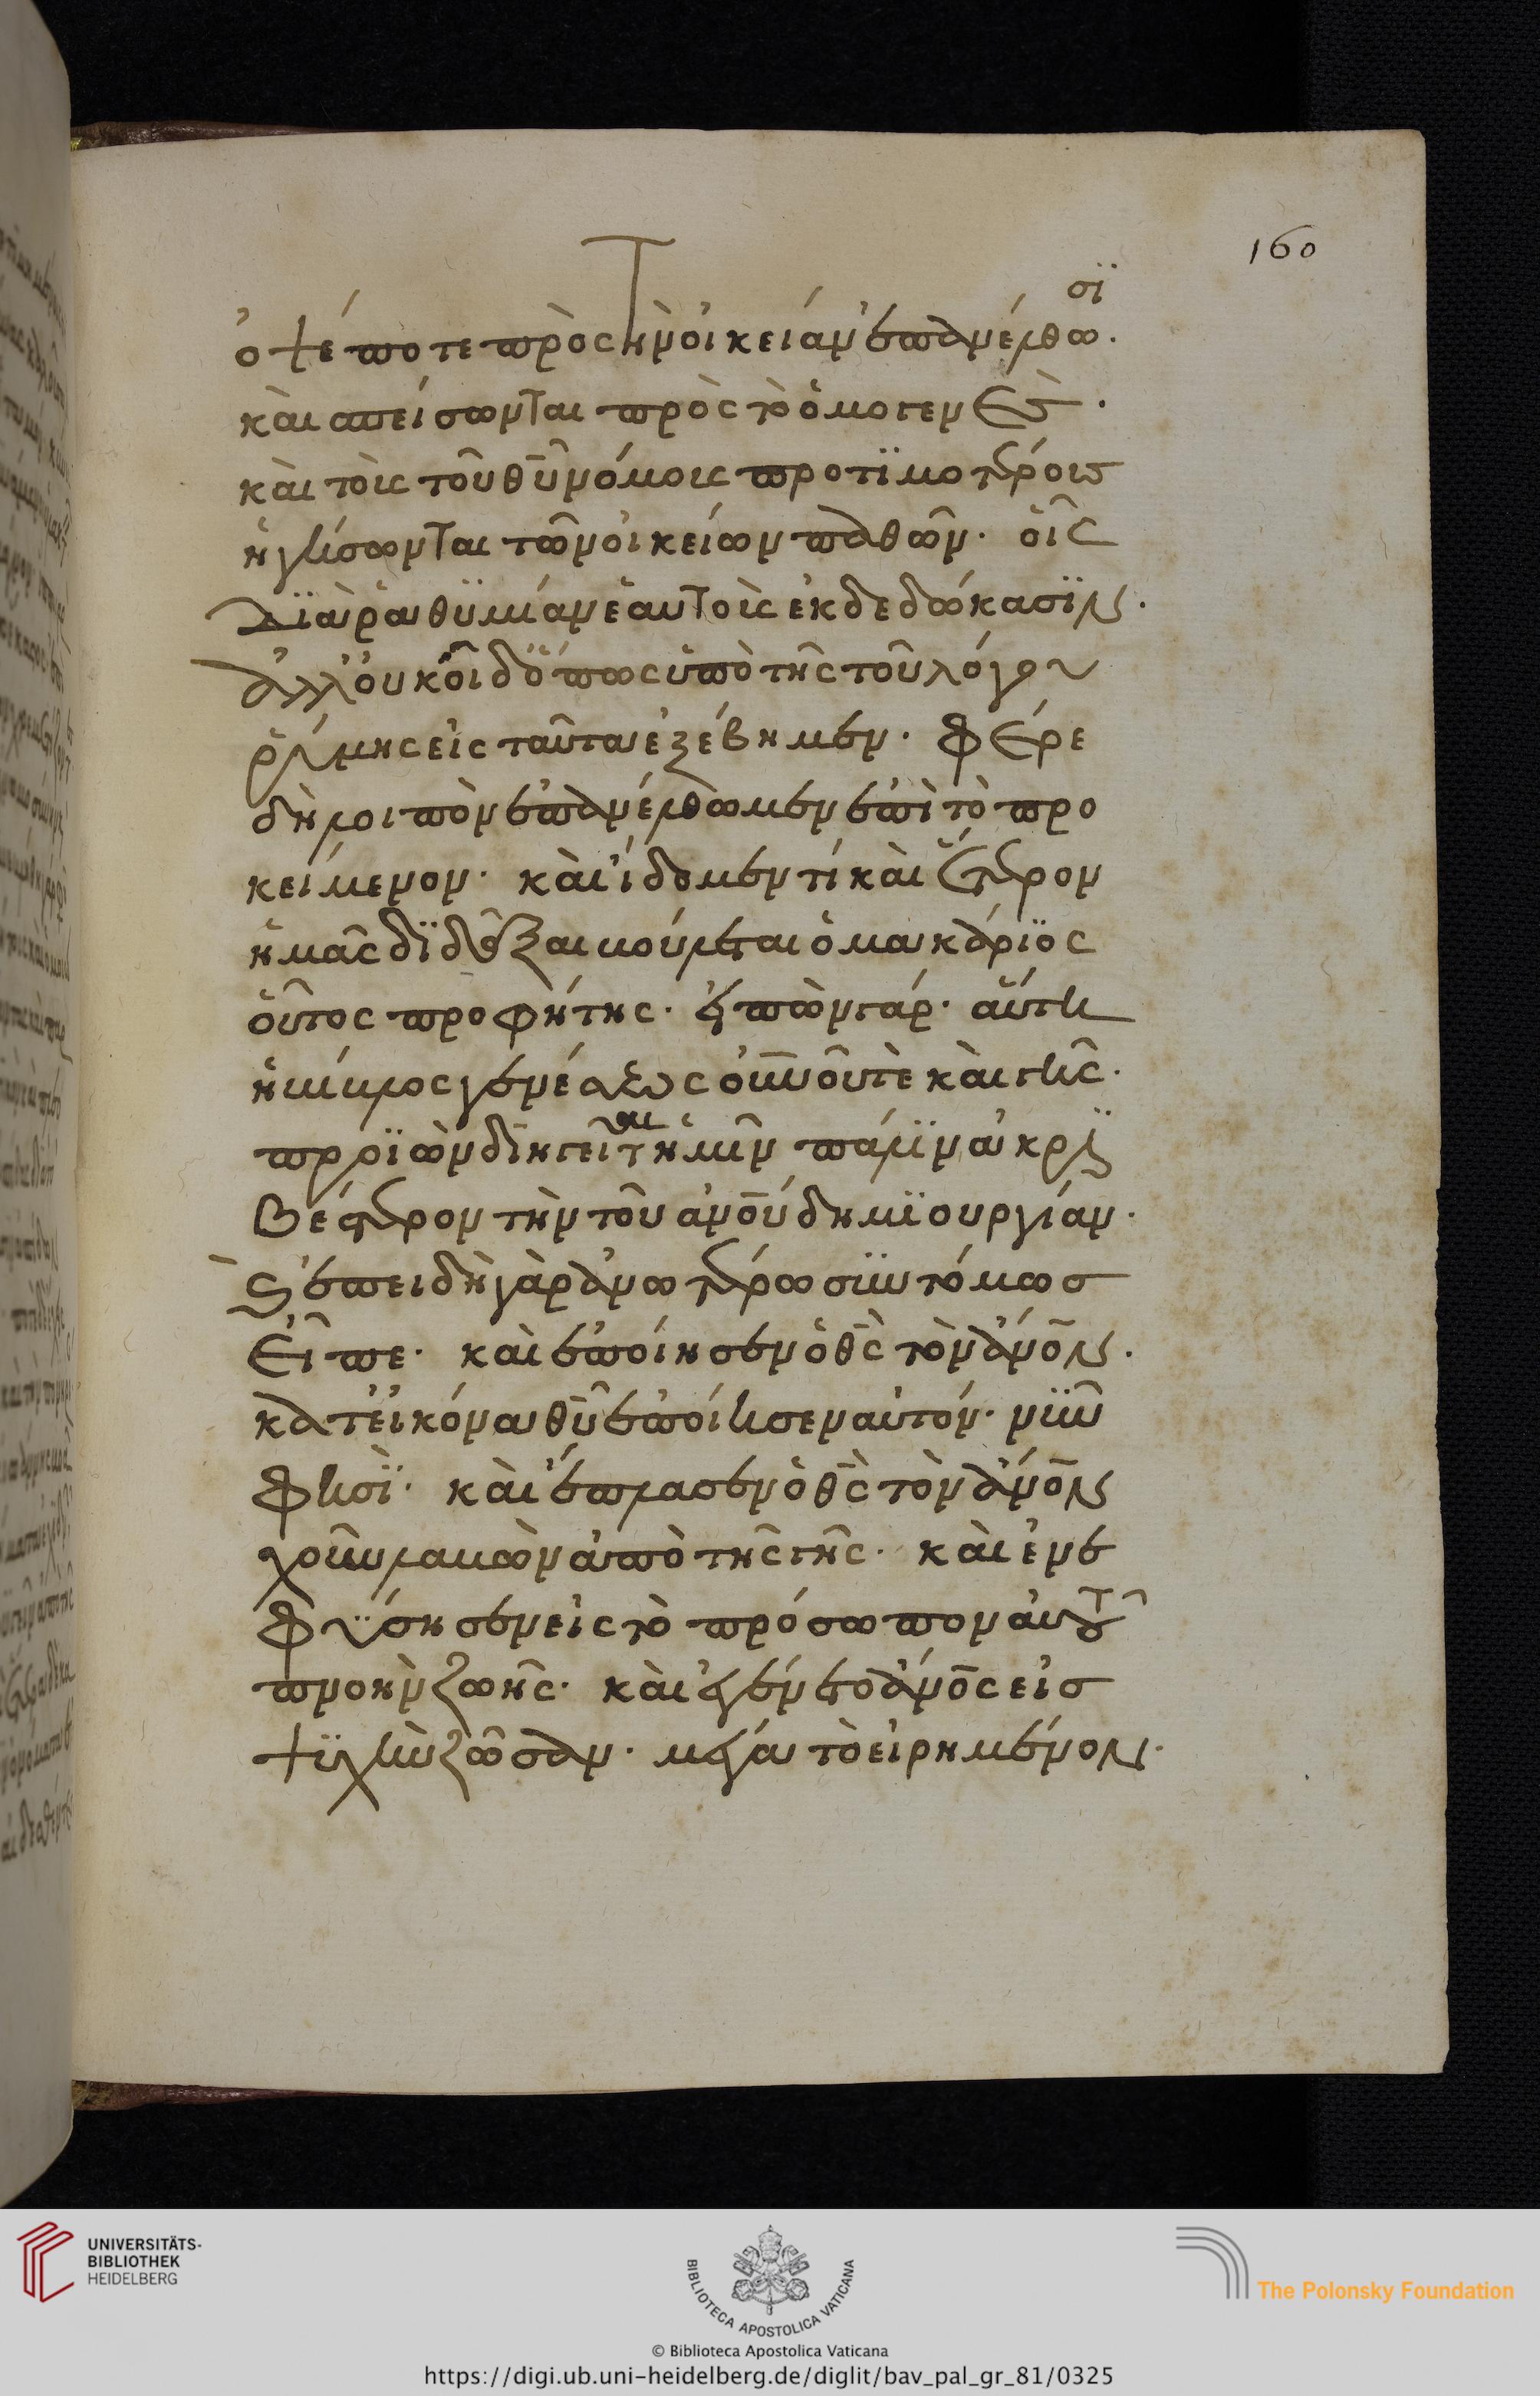 160
ὀψέ ποτε πρὸς τὴν οἰκείαν ἐπανέλθωσϊ.
καὶ σπείσωνται πρὸς τὸ ὁμογενὲς.
καὶ τοὺς τοῦ θῡ νόμους προτϊμοτέρους
ἡγήσωνται τῶν οἰκείων παθῶν. οἷς
δϊὰ ῥαθϋμίαν ἑαυτοὺς ἐκδεδώκασϊν.
ἀλλ' οὐκ οἶδ' ὅπως ὑπὸ τῆς τοῦ λόγου
ῥύμης εἰς ταῦτα ἐξέβημεν. φέρε
δὴ λοιπὸν ἐπανέλθωμεν ἐπὶ τὸ προ
κείμενον. καὶ ἴδομεν τί καὶ ἕτερον
ἡμᾶς δϊδάξαι βούλεται ὁ μακάρϊος
οὗτος προφήτης. εἰπὼν γάρ. αὕτη
ἡ βίβλος γενέσεως οὐν̅οῦ τὲ καὶ γῆς.
προϊὼν διηγεῖται ἡμῖν πάλϊν ἀκρϊ
βέστερον τὴν τοῦ αν̅ου δημϊουργίαν.
καὶ ἐπειδὴ γὰρ ἀνωτέρω συντόμως
εἶπε. καὶ ἐποίησεν ὁ θ̅ς τὸν ἄνο̅ν.
κατ' εἰκόνα θῡ ἐποίησεν αὐτόν. νῦν
φησϊ. καὶ ἔπλασεν ὁ θ̅ς τὸν ἄνο̅ν
χοῦν λαβὼν ἀπὸ τῆς γῆς. καὶ ἐνε
φϋσησεν εἰς τὸ πρόσωπον αὐτοῦ
πνοὴν ζωῆς. καὶ ἐγένετο ὁ ἄνο̅ς εἰς
ψϋχὴν ζῶσαν. μέγα τὸ εἰρημένον.
UNIVERSITÄTS-
BIBLIOTHEK
HEIDELBERG
BIBLIOTECA APOSTOLICA VATICANA
The Polonsky Foundation
© Biblioteca Apostolica Vaticana
https://digi.ub.uni-heidelberg.de/diglit/bav_pal_gr_81/0325